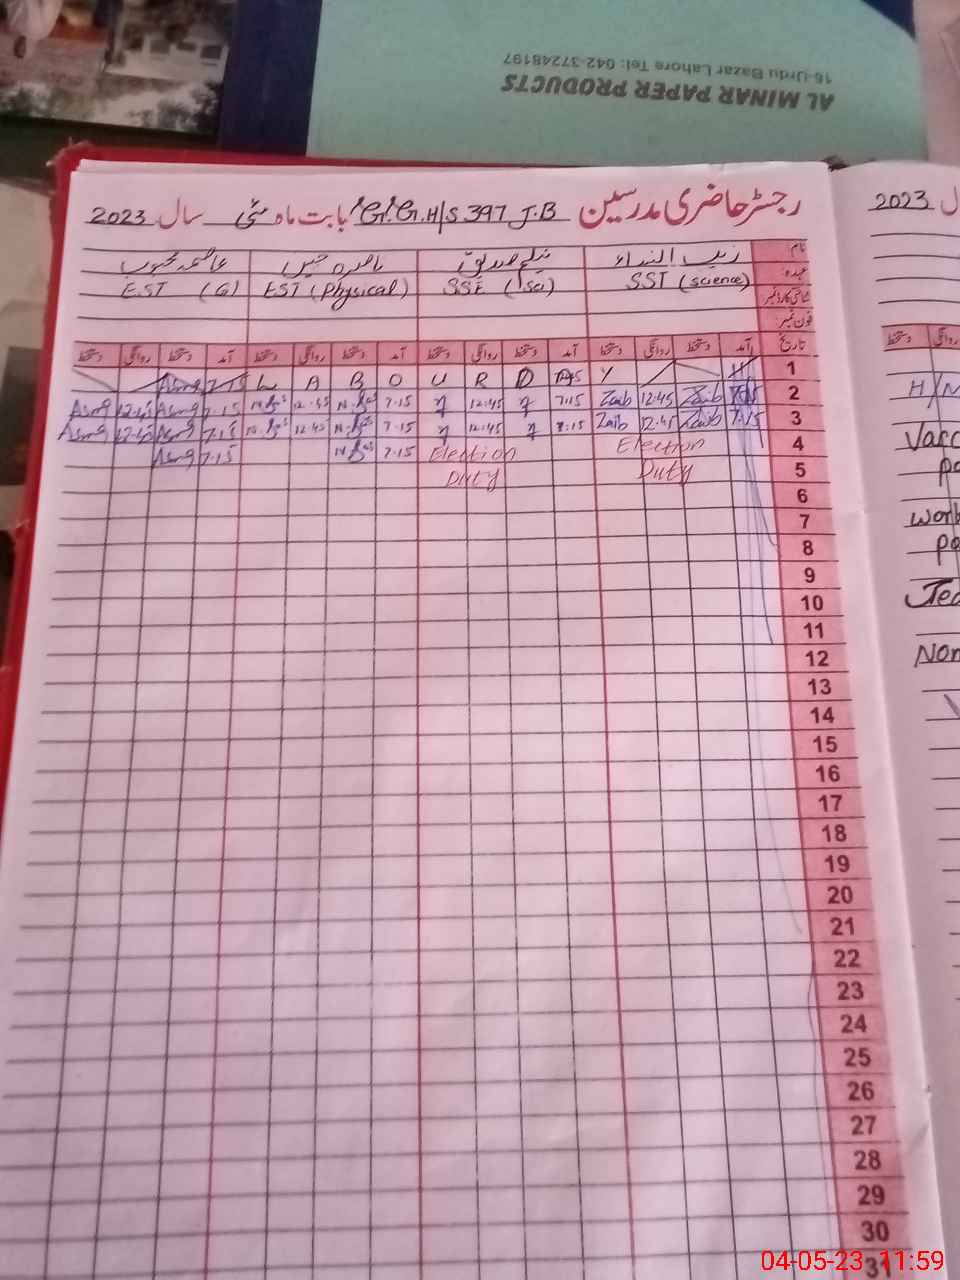 AL MINAR PAPER PRODUCTS
16-Urdu Bazar Lahore Tel: 042-37248197
رجسٹر حاضری مدرسین G.G.H/S 397 J.B بابت ماہ مئی سال 2023
نام زیب النساء نیلم صدیق ناصرہ حسین عاصمہ محبوب
عہدہ SST (science) SSE (Sci) EST (Physical) EST (G)
شناختی کارڈ نمبر
فون نمبر
تاریخ آمد دستخط روانگی دستخط آمد دستخط روانگی دستخط آمد دستخط روانگی دستخط آمد دستخط روانگی دستخط
1 H Y D R U O B A L 7.15 Asma
2 7.15 Zaib 12.45 Zaib 7.15 12.45 7.15 12.45 7.15 Asma 12.45 Asma
3 7.15 Zaib 12.45 Zaib 7.15 12.45 7.15 12.45 7.15 Asma 12.45 Asma
4 Election Election 7.15 7.15 Asma
5 Duty Duty
6
7
8
9
10
11
12
13
14
15
16
17
18
19
20
21
22
23
24
25
26
27
28
29
30
31
2023
H/M
04-05-23 11:59